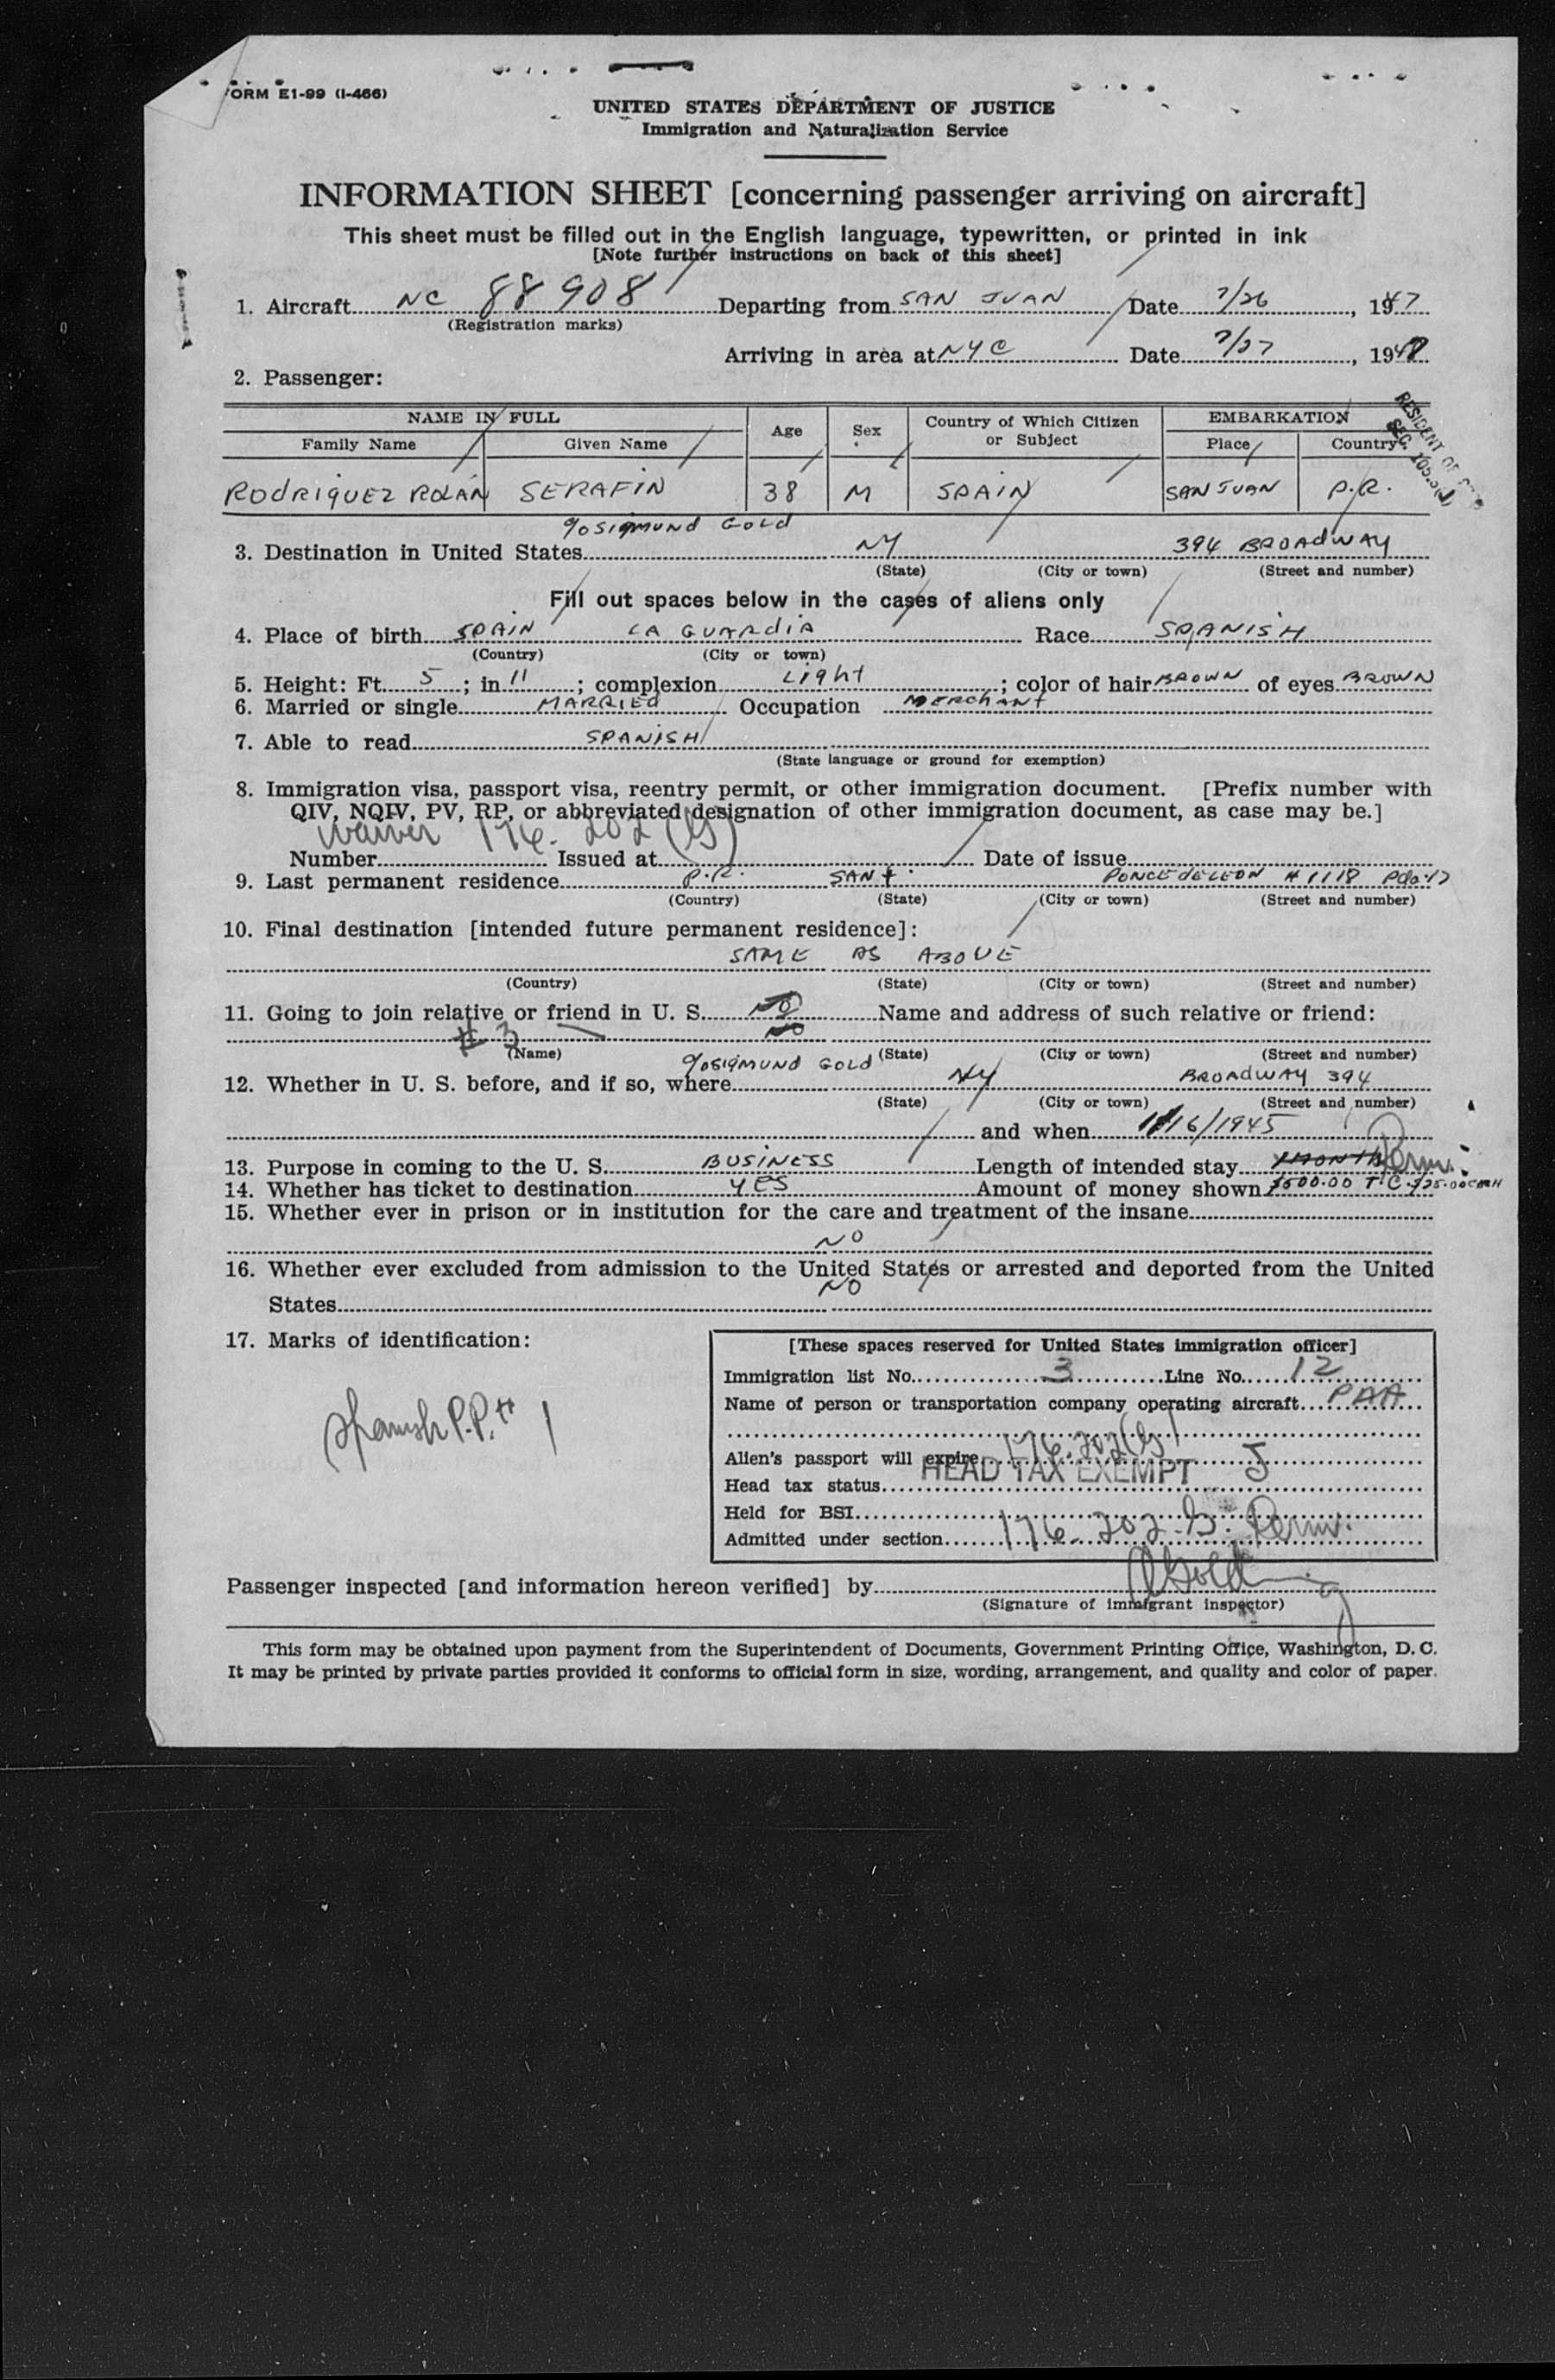 FORM E1-99 (I-466)
UNITED STATES DEPARTMENT OF JUSTICE
Immigration and Naturalization Service
INFORMATION SHEET [concerning passenger arriving on aircraft]
This sheet must be filled out in the English language, typewritten, or printed in ink
[Note further instructions on back of this sheet]
1. Aircraft NC 88908 Departing from SAN JUAN Date 7/26, 1947
(Registration marks)
Arriving in area at NYC Date 7/27, 1947
2. Passenger:
NAME IN FULL Age Sex Country of Which Citizen or Subject EMBARKATION
Family Name Given Name Place Country
RESIDENT OF
RODRIQUEZ ROLÁN SERAFIN 38 M SPAIN SAN JUAN P.R.
3. Destination in United States c/o SIGMUND GOLD NY 394 BROADWAY
(State) (City or town) (Street and number)
Fill out spaces below in the cases of aliens only
4. Place of birth SPAIN LA GUARDIA Race SPANISH
(Country) (City or town)
5. Height: Ft. 5; in 11; complexion LIGHT; color of hair BROWN of eyes BROWN
6. Married or single MARRIED Occupation MERCHANT
7. Able to read SPANISH
(State language or ground for exemption)
8. Immigration visa, passport visa, reentry permit, or other immigration document. [Prefix number with
QIV, NQIV, PV, RP, or abbreviated designation of other immigration document, as case may be.]
Waiver 176.202 (G)
Number Issued at Date of issue
9. Last permanent residence P.R. SANT. PONCE de LEON # 1118 Pda.17
(Country) (State) (City or town) (Street and number)
10. Final destination [intended future permanent residence]:
SAME AS ABOVE
(Country) (State) (City or town) (Street and number)
11. Going to join relative or friend in U. S. NO Name and address of such relative or friend:
# 3 NO
(Name) (State) (City or town) (Street and number)
12. Whether in U. S. before, and if so, where c/o SIGMUND GOLD NY BROADWAY 394
(State) (City or town) (Street and number)
and when 11/16/1945
13. Purpose in coming to the U. S. BUSINESS Length of intended stay 1 MONTH Perm.
14. Whether has ticket to destination YES Amount of money shown $500.00 T.C. $25.00 CASH
15. Whether ever in prison or in institution for the care and treatment of the insane
NO
16. Whether ever excluded from admission to the United States or arrested and deported from the United
States NO
17. Marks of identification:
Spanish P.P. #
[These spaces reserved for United States immigration officer]
Immigration list No. 3 Line No. 12
Name of person or transportation company operating aircraft PAA
Alien's passport will expire 176.202(G)
HEAD TAX EXEMPT 5
Head tax status
Held for BSI
Admitted under section 176.202-G. Perm.
Passenger inspected [and information hereon verified] by
(Signature of immigrant inspector)
This form may be obtained upon payment from the Superintendent of Documents, Government Printing Office, Washington, D. C.
It may be printed by private parties provided it conforms to official form in size, wording, arrangement, and quality and color of paper.